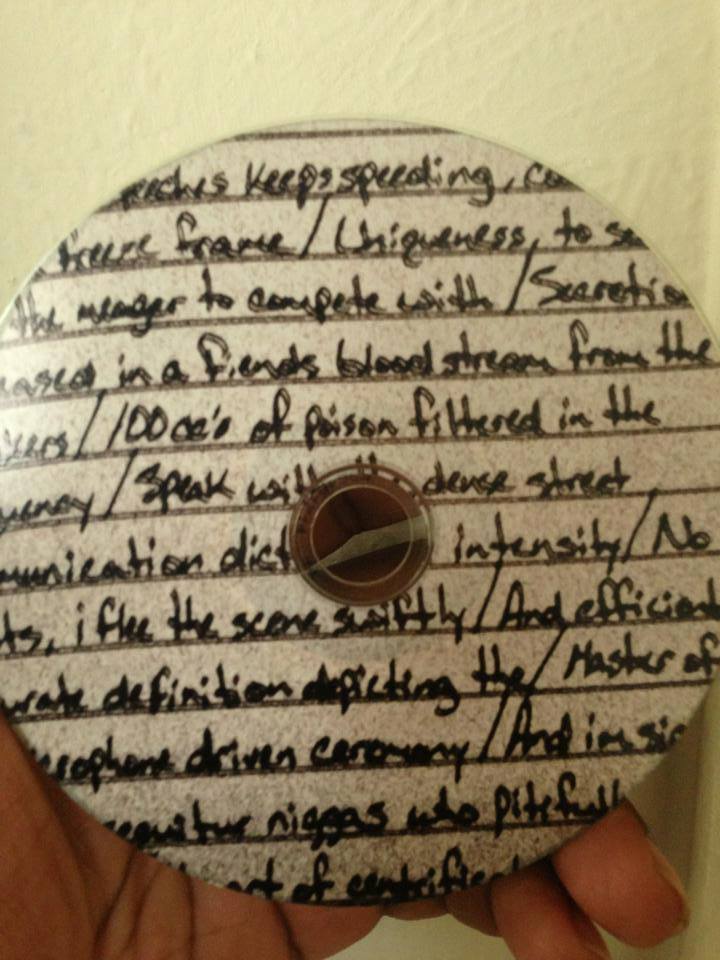 eeches keeps speeding, co
freeze frame / Uniqueness, to se
the meager to compete with / Secretio
eased in a fiends blood stream from the
ixers / 100 cc's of poison filtered in the
quency / Speak with th dense street
munication dict intensity / No
ts, i flee the scene swiftly / And efficient
urate definition depicting the / Master of
rophone driven ceremony / And im sic
sequitur niggas who pitefull
art of centrific